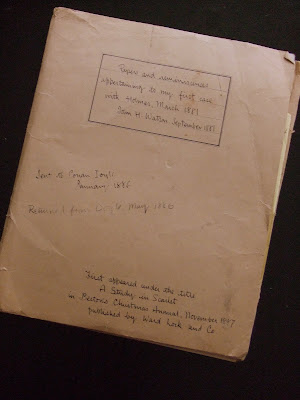 Papers and
appertaining to my first case
with Holmes, March 1881
John H. Watson September 1881
Sent to Conan Doyle
January, 1886
Returned from May 1886
First appeared under the title
A Study in Scarlet
in Beeton's Christmas Annual, November 1887
published by Ward Lock and Co